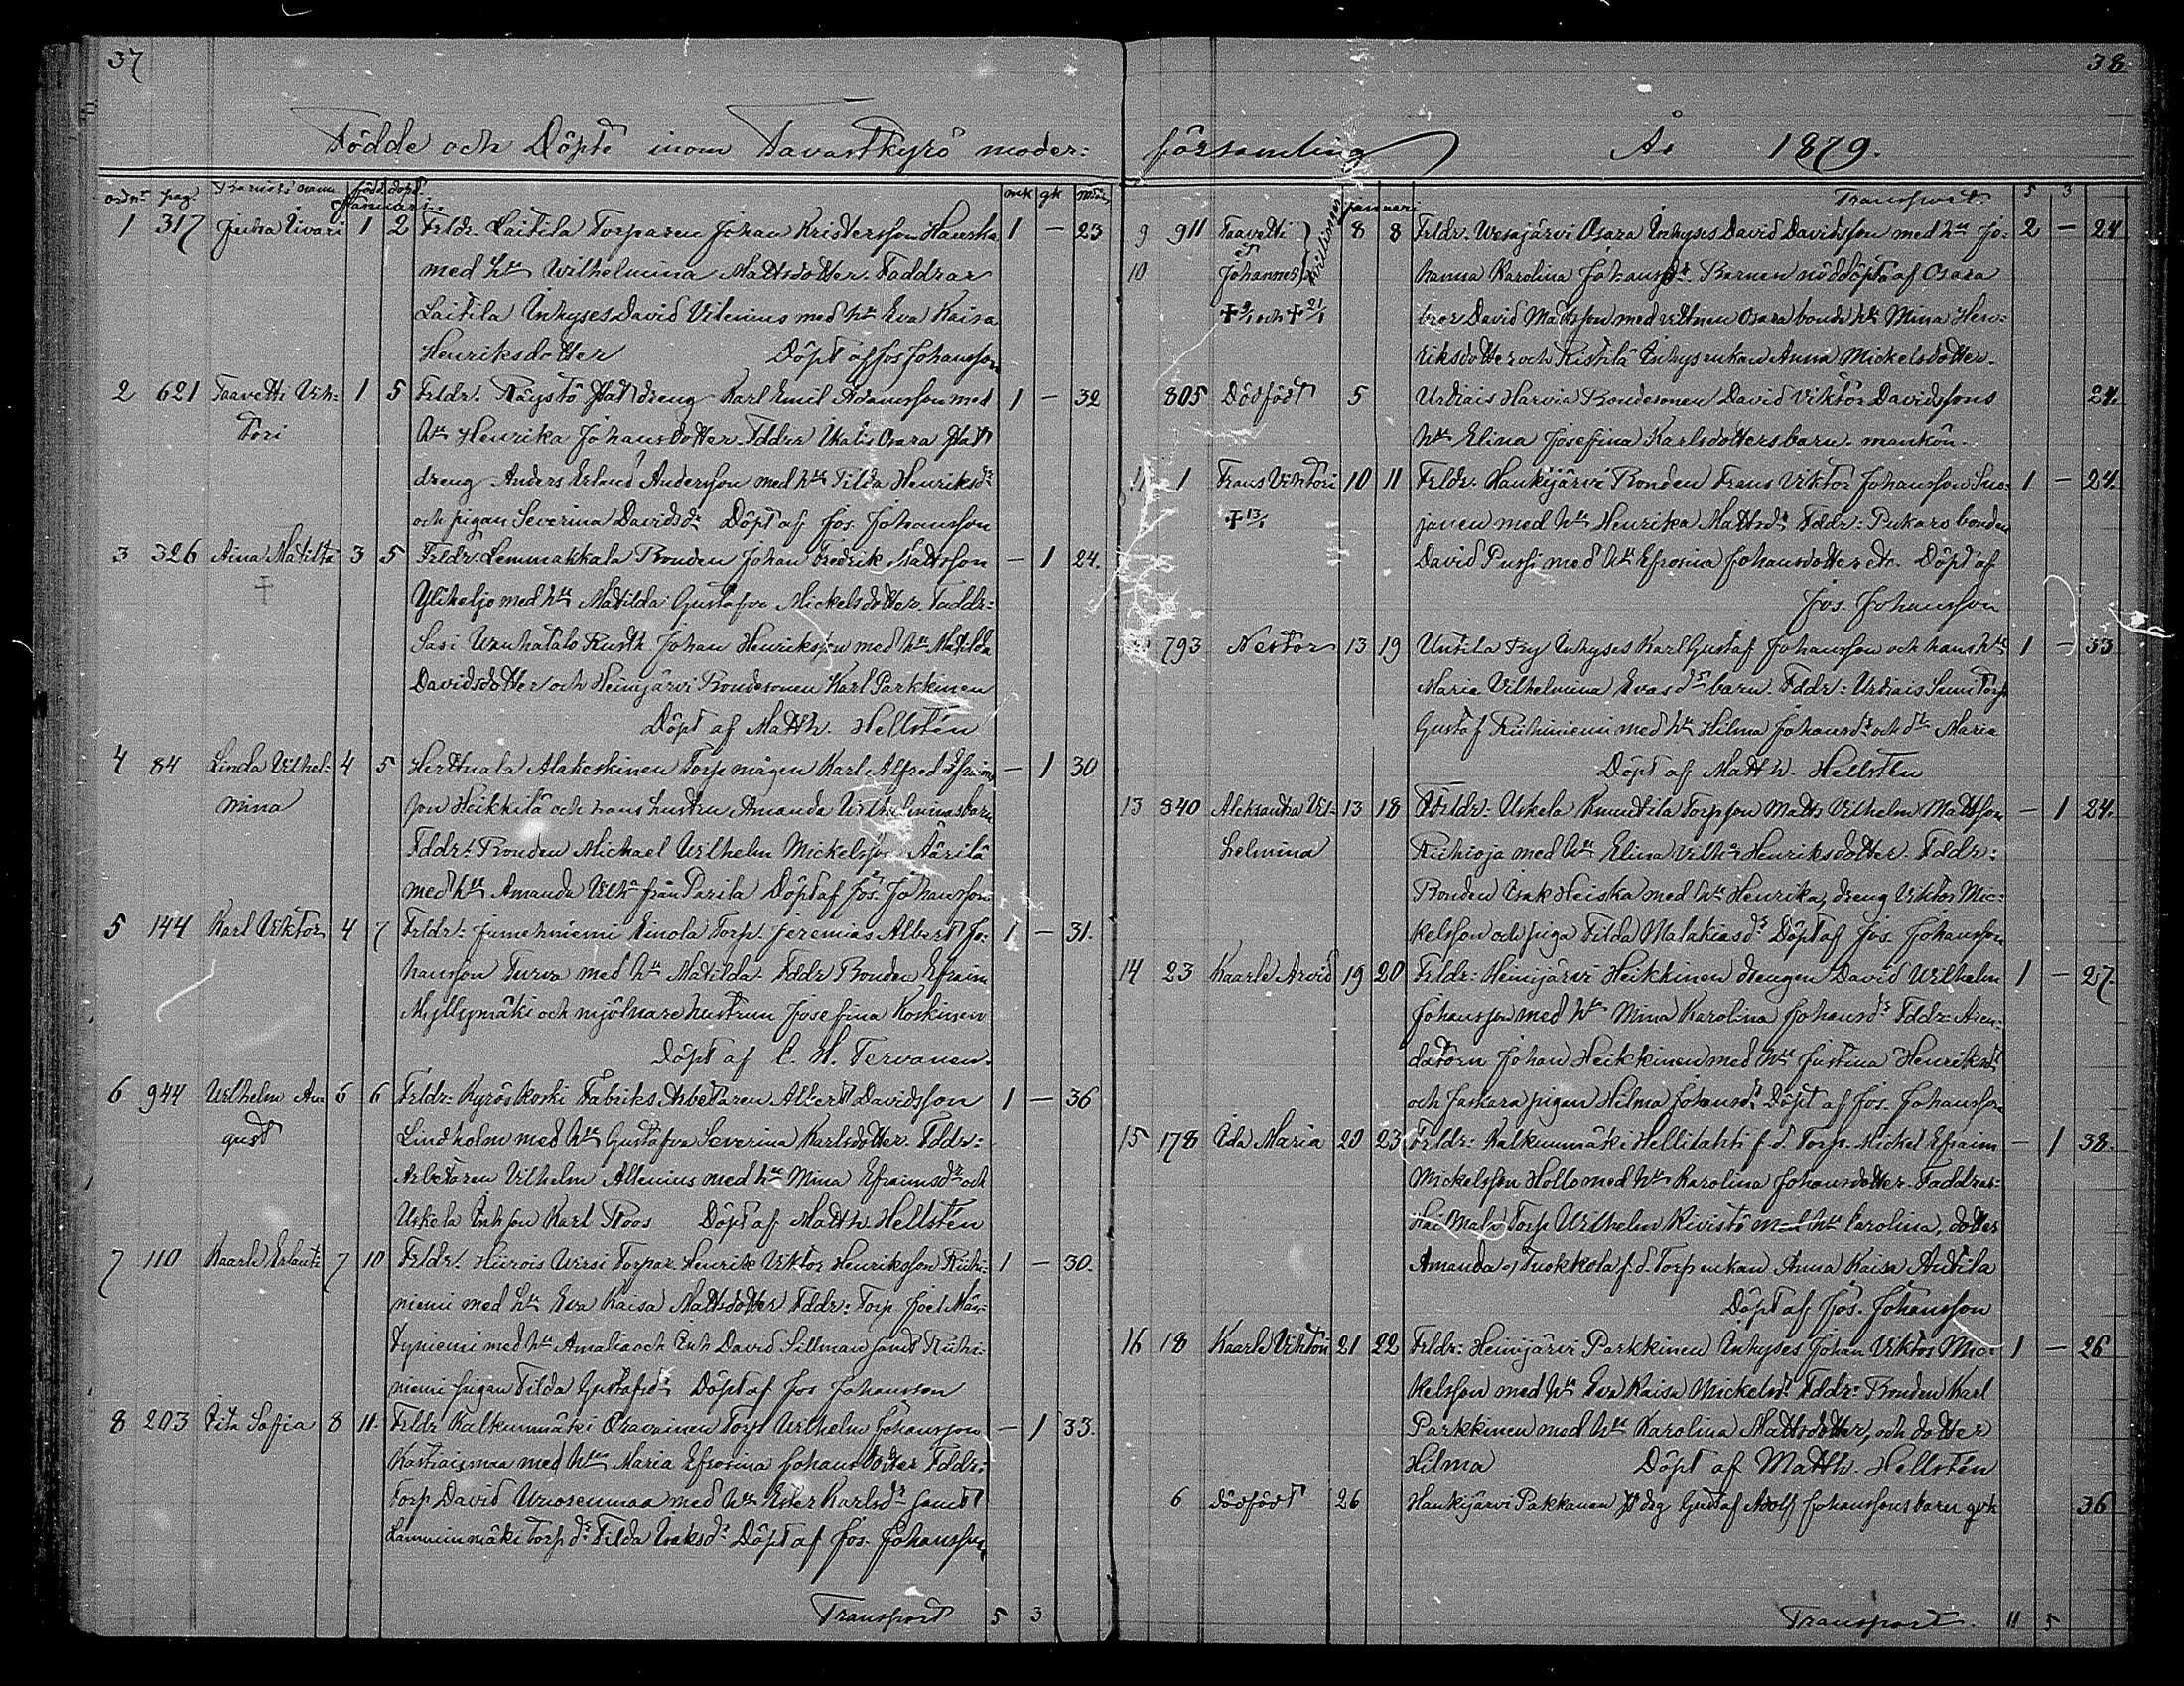 37
Födde och Döpte inom Tavastkyrö moder:
ordn. pag. Barnets namn född döpt. mk gk
Januari.
1 317 Juha Iivari 1 2 Frldr. Laitila Torparen Johan Kristersson Hanska 1 — 23
med hu Wilhelmina Mattsdotter. Faddrar
Laitila Inhyses David Vilenius med hu Eva Kaisa
Henriksdotter Döpt af Jos Johansson
2 621 Taavetti Vik- 1 5 Frldr. Röystö dreng Karl Emil Adamsson med 1 — 32
tori hu Henrika Johansdotter. Fddr Osara
dreng Anders Erland Andersson med hu Tilda Henriksdr
och pigan Severina Davidsdr Döpt af Jos. Johansson
3 326 Aina Matilta 3 5 Frldr. Lemmakkala Bonden Johan Fredrik Mattsson — 1 24.
+ med hu Matilda Gustafva Mickelsdotter. Faddr:
Sasi Vanhatalo Rusth. Johan Henriksson med hu Matilda
Davidsdotter och Heinijärvi Bondesonen Karl Parkkinen
Döpt af Matth. Hellstén
4 84 Linda Vilhel- 4 5 Herttuala Alakeskinen Torp mågen Karl Alfred — 1 30
mina son Heikkilä och hans hustru Amanda Vilhelminas barn
Fddr: Bonden Michael Wilhelm Mickelsson
med hu Amanda Vilh från Parila Döpt af Jos. Johansson
5 144 Karl Viktor 4 7 Frldr: Jumesniemi Einola Torp. Jeremias Albert Jo- 1 — 31.
hansson Turva med hu Matilda. Fddr Bonden Efraim
Myllymäki och mjölnare hustrun Josefina Koskinen
Döpt af C. H. Tervanen.
6 944 Wilhelm Au 6 6 Frldr: Kyröskoski Fabriks Arbetaren Albert Davidsson 1 — 36
gust Lindholm med hu Gustafva Severina Karlsdotter. Fddr:
Arbetaren Vilhelm Allenius med hu Mina Efraimsdr och
Uskela Inh son Karl Roos Döpt af Matth. Hellstén
7 110 Kaarle Erlanti 7 10 Frldr: Hiirois Torpar. Henrik Viktor Henriksson Riihi- 1 — 30.
niemi med hu Eva Kaisa Mattsdotter Fddr: Torp Joel Män-
tyniemi med hu Amalia och Inh David Sillman samt Riihi-
niemi pigan Tilda Gustafsdr Döpt af Jos Johansson
8 203 Iita Sofia 8 11. Frldr Kalkunmäki Oravainen Torp Wilhelm Johansson — 1 33.
med hu Maria Efrosina Johansdotter Fddr:
Torp David Vuorenmaa med hu Ester Karlsdr samt
Lamminmäki torp dr Tilda Isaksdr Döpt af Jos. Johansson
Transport 5 3
38
församling År 1879.
Januari Transport. 5 3
9 911 Taavetti 8 8 Frldr. Vesajärvi Osara Inhyses David Davidsson med hu Jo- 2 — 24
10 Johannes hanna Karolina Johansdr. Barnen nöddöpta af Osara
David Mattsson med vittnen Osara bonde hu Mina Hen-
riksdotter och Ristilä Inhysenkan Anna Mickelsdotter.
805 Dödfödt 5 Urdiais Harvia Bondesonen David Viktor Davidssons 24.
hu Elina Josefina Karlsdotters barn. mankön.
11 1 Frans Viktori 10 11 Frldr. Haukijärvi Bonden Frans Viktor Johansson Suo- 1 — 24.
+ 13/1 janen med hu Henrika Mattsdr. Fddr: Pukara bonden
David Pussi med hu Efrosina Johansdotter etc. Döpt af
Jos. Johansson
793 Nestor 13 19 Untila By Inhyses Karl Gustaf Johansson och hans hu 1 — 33
Maria Vilhelmina Evasdrs barn. Fddr: Urdiais Torp
Gustaf Riihiniemi med hu Hilma Johansdr och dr Maria
Döpt af Matth. Hellstén
13 840 Aleksandra Vil- 13 18 Frldr: Uskela Knuutila Torpson Matts Vilhelm Mattsson — 1 24.
helmina Riihioja med hu Elina Vilh Henriksdotter. Fddr:
Bonden Isak Heiska med hu Henrika, dreng Viktor Mic-
kelsson och piga Tilda Malakiasdr Döpt af Jos. Johansson
14 23 Kaarle Arvid 19 20 Frldr: Heinijärvi Heikkinen drengen David Wilhelm 1 — 27.
Johansson med hu Mina Karolina Johansdr Fddr: Aren-
datorn Johan Heikkinen med hu Justina Henriksdr
och Jaskara pigan Hilma Johansdr Döpt af Jos. Johansson
15 178 Ida Maria 20 23 Frldr: Kalkunmäki Hellilahti f.d. Torp. Mickel Efraim — 1 38.
Mickelsson Hollo med hu Karolina Johansdotter. Faddrar:
Torp Wilhelm Kivistö med hu Carolina, dotter
Amanda Tuokkola f.d. Torpenkan Anna Kaisa Antila
Döpt af Jos. Johansson
16 18 Kaarle Viktori 21 22 Frldr: Heinijärvi Parkkinen Inhyses Johan Viktor Mic- 1 — 26
kelsson med hu Eva Kaisa Mickelsdr. Fddr: Bonden Karl
Parkkinen med hu Karolina Mattsdotter, och dotter
Hilma Döpt af Matth. Hellstén
6 Dödfödt 26 Haukijärvi Pakkanen drg Gustaf Adolf Johanssons barn qvk 36
Transport. 11 5